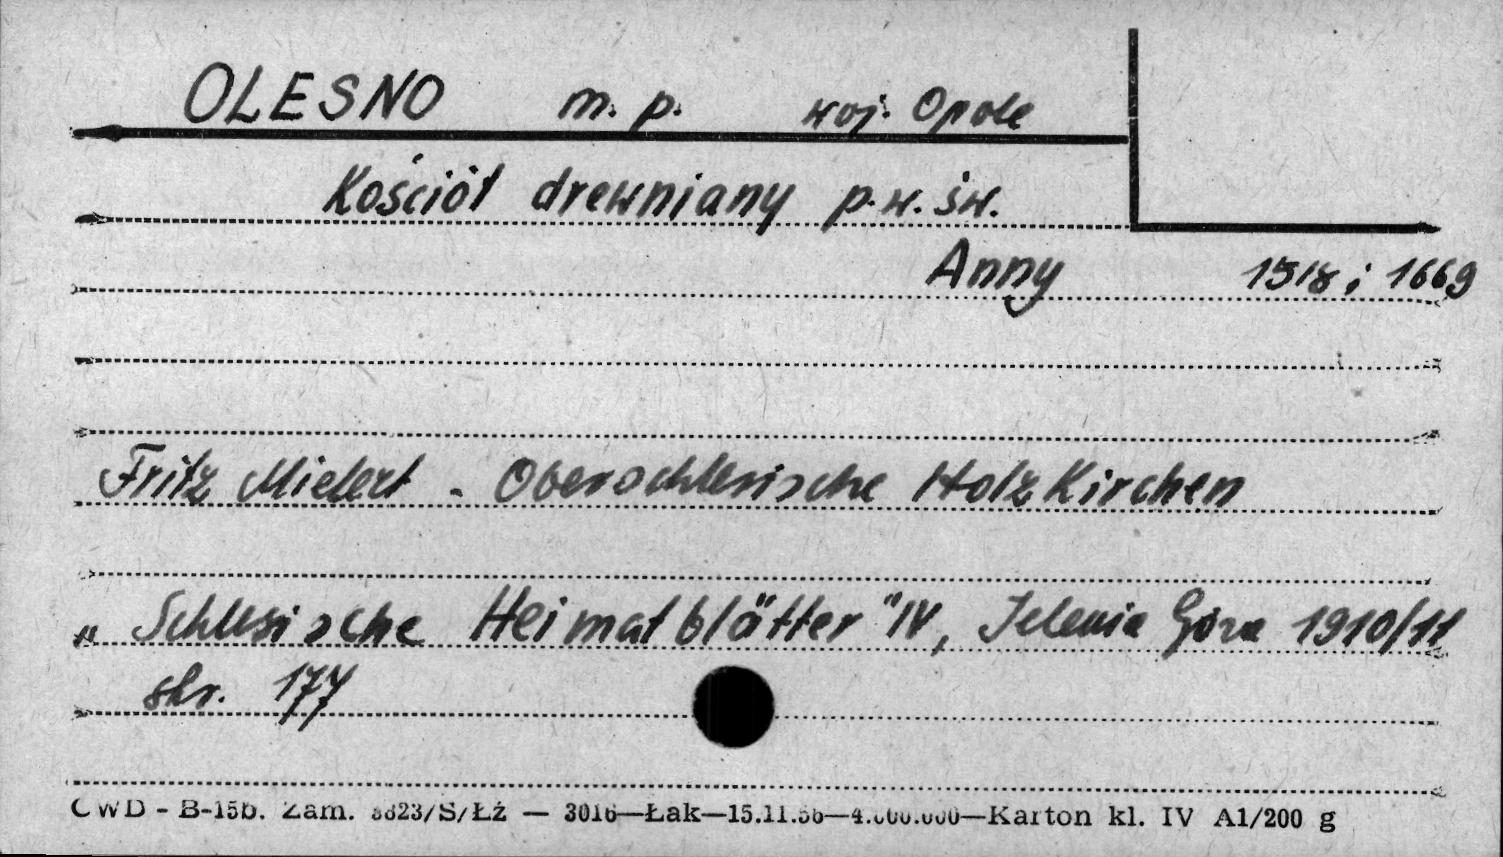 OLESNO m. p. woj. Opole
Kościół drewniany p.w. św.
Anny 1518 i 1669
Fritz Mielert - Oberschlesische Holz Kirchen
"Schlesische Heimatblätter" IV, Jelenia Góra 1910/11
str. 177
CWD - B-15b. Zam. 8823/S/Łż — 3016—Łak—15.11.56—4.000.000—Karton kl. IV A1/200 g